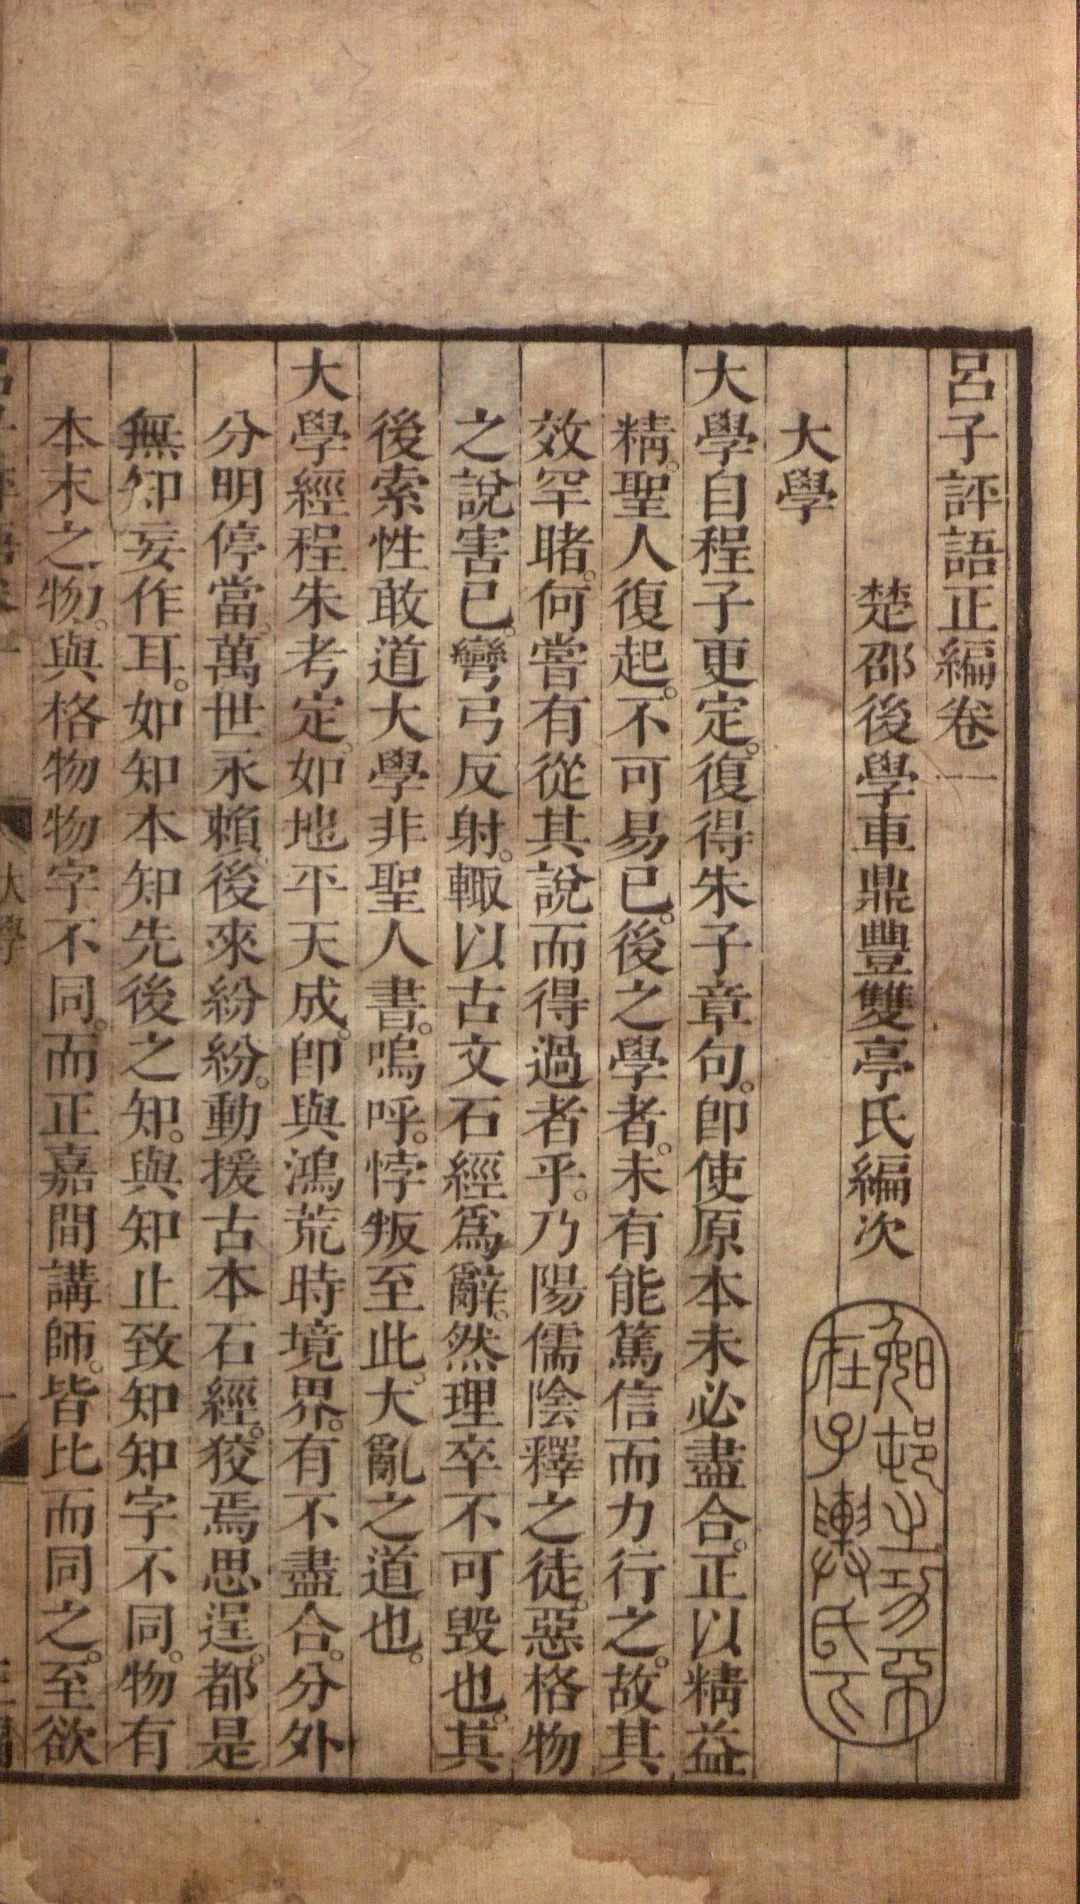 呂子評語正編卷一
楚邵後學車鼎豐雙亭氏編次
大學
大學自程子更定。復得朱子章句。卽使原本未必盡合。正以精益
精。聖人復起。不可易已。後之學者。未有能篤信而力行之。故其
效罕睹。何嘗有從其說而得過者乎。乃陽儒陰釋之徒。惡格物
之說害己。彎弓反射。輒以古文石經爲辭。然理卒不可毁也。其
後索性敢道大學非聖人書。嗚呼。悖叛至此。大亂之道也。
大學經程朱考定。如地平天成。卽與鴻荒時境界。有不盡合。分外
分明停當。萬世永賴。後來紛紛。動援古本石經。狡焉思逞。都是
無知妄作耳。如知本知先後之知。與知止致知知字不同。物有
本末之物。與格物物字不同。而正嘉間講師。皆比而同之。至欲
大學